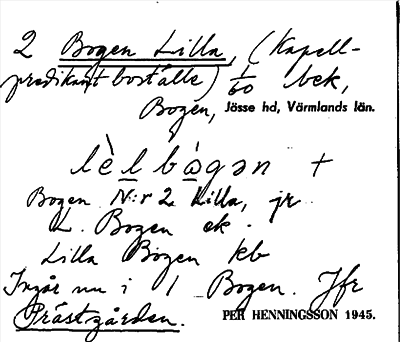 2 Bogen Lilla, (Kapell-
predikantboställe) 1/60 bek,
Bogen, Jösse hd, Värmlands län.
lèlbògən +
Bogen N:r 2 Lilla, jr
L. Bogen ek.
Lilla Bogen kb
Ingår nu i 1 Bogen. Jfr
Prästgården. PER HENNINGSSON 1945.